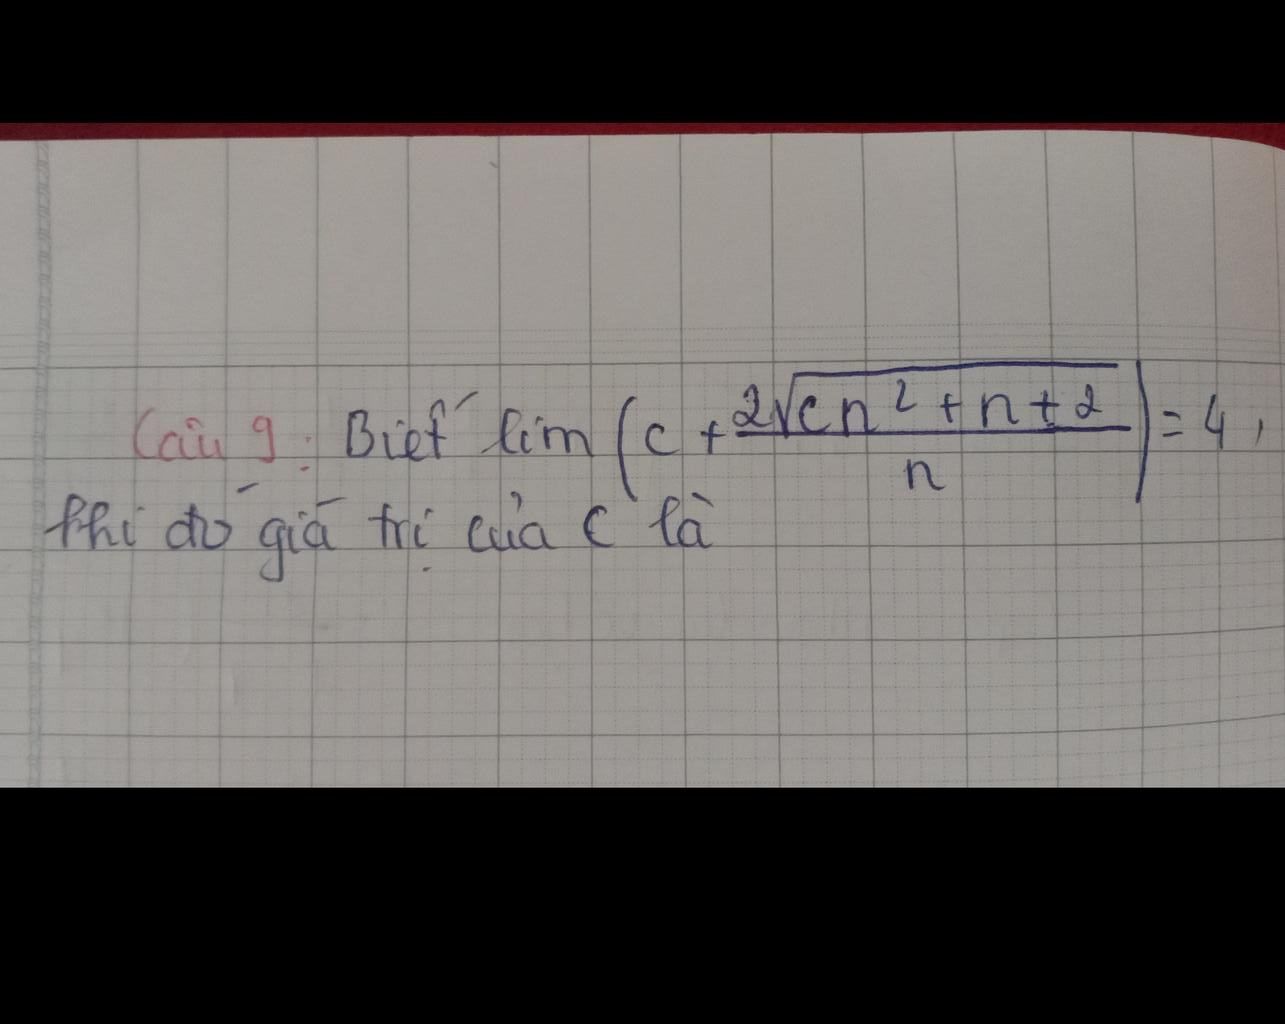 Câu 9: Biết lim (c + 2√(cn² + n + 2) / n) = 4,
khi đó giá trị của c là